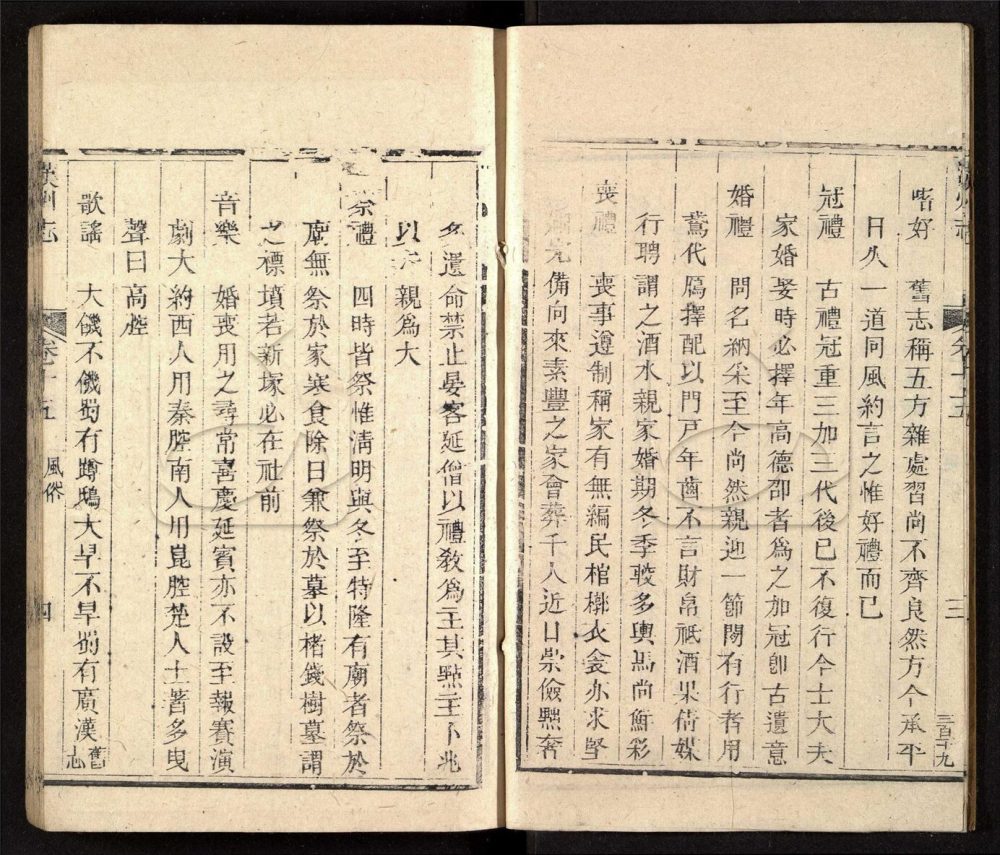 漢州志 卷十五 三 三百十九
嗜好 舊志稱五方雜處習尚不齊良然方今承平
日久一道同風約言之惟好禮而已
冠禮 古禮冠重三加三代後已不復行今士大夫
家婚娶時必擇年高德卲者為之加冠卽古遺意
婚禮 問名納采至今尚然親迎一節閒有行者用
鵞代鴈擇配以門戸年齒不言財帛祇酒果倩媒
行聘謂之酒水親家婚期冬季較多輿馬尚鮮彩
喪禮 喪事遵制稱家有無編民棺槨衣衾亦求堅
完備向來素豐之家會葬千人近日崇儉黜奢
多遺命禁止晏客延僧以禮敎為主其㸃主卜兆
以 親為大
祭禮 四時皆祭惟淸明與冬至特隆有廟者祭於
廟無祭於家寒食除日兼祭於墓以楮錢樹墓謂
之標墳若新塚必在社前
音樂 婚喪用之尋常喜慶延賓亦不設至報賽演
劇大約西人用秦腔南人用崑腔楚人土著多曳
聲曰高腔
歌謠 大饑不饑蜀有蹲鴟大旱不旱蜀有廣漢舊志
漢州志 卷十五 風俗 四